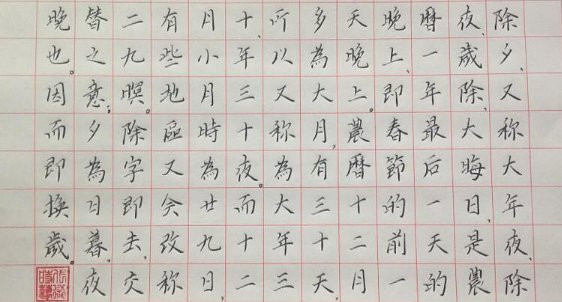 除夕、又称大年夜、除
夜、歲除、大晦日,是農
曆一年最后一天的
晚上,即春節的前一
天晚上。農曆十二月
多為大月,有三十天,
所以又称為大年三
十、年三十夜。而十二
月小月時為廿九日,
有些地區又会改称
二九暝。除字即去,交
替之意;夕為日暮,夜
晚也。因而即換歲。